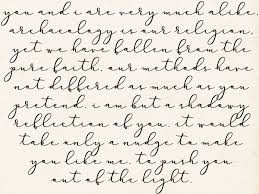 you and i are very much alike.
archaeology is our religion,
yet we have fallen from the
pure faith. our methods have
not differed as much as you
pretend. i am but a shadowy
reflection of you. it would
take only a nudge to make
you like me. to push you
out of the light.